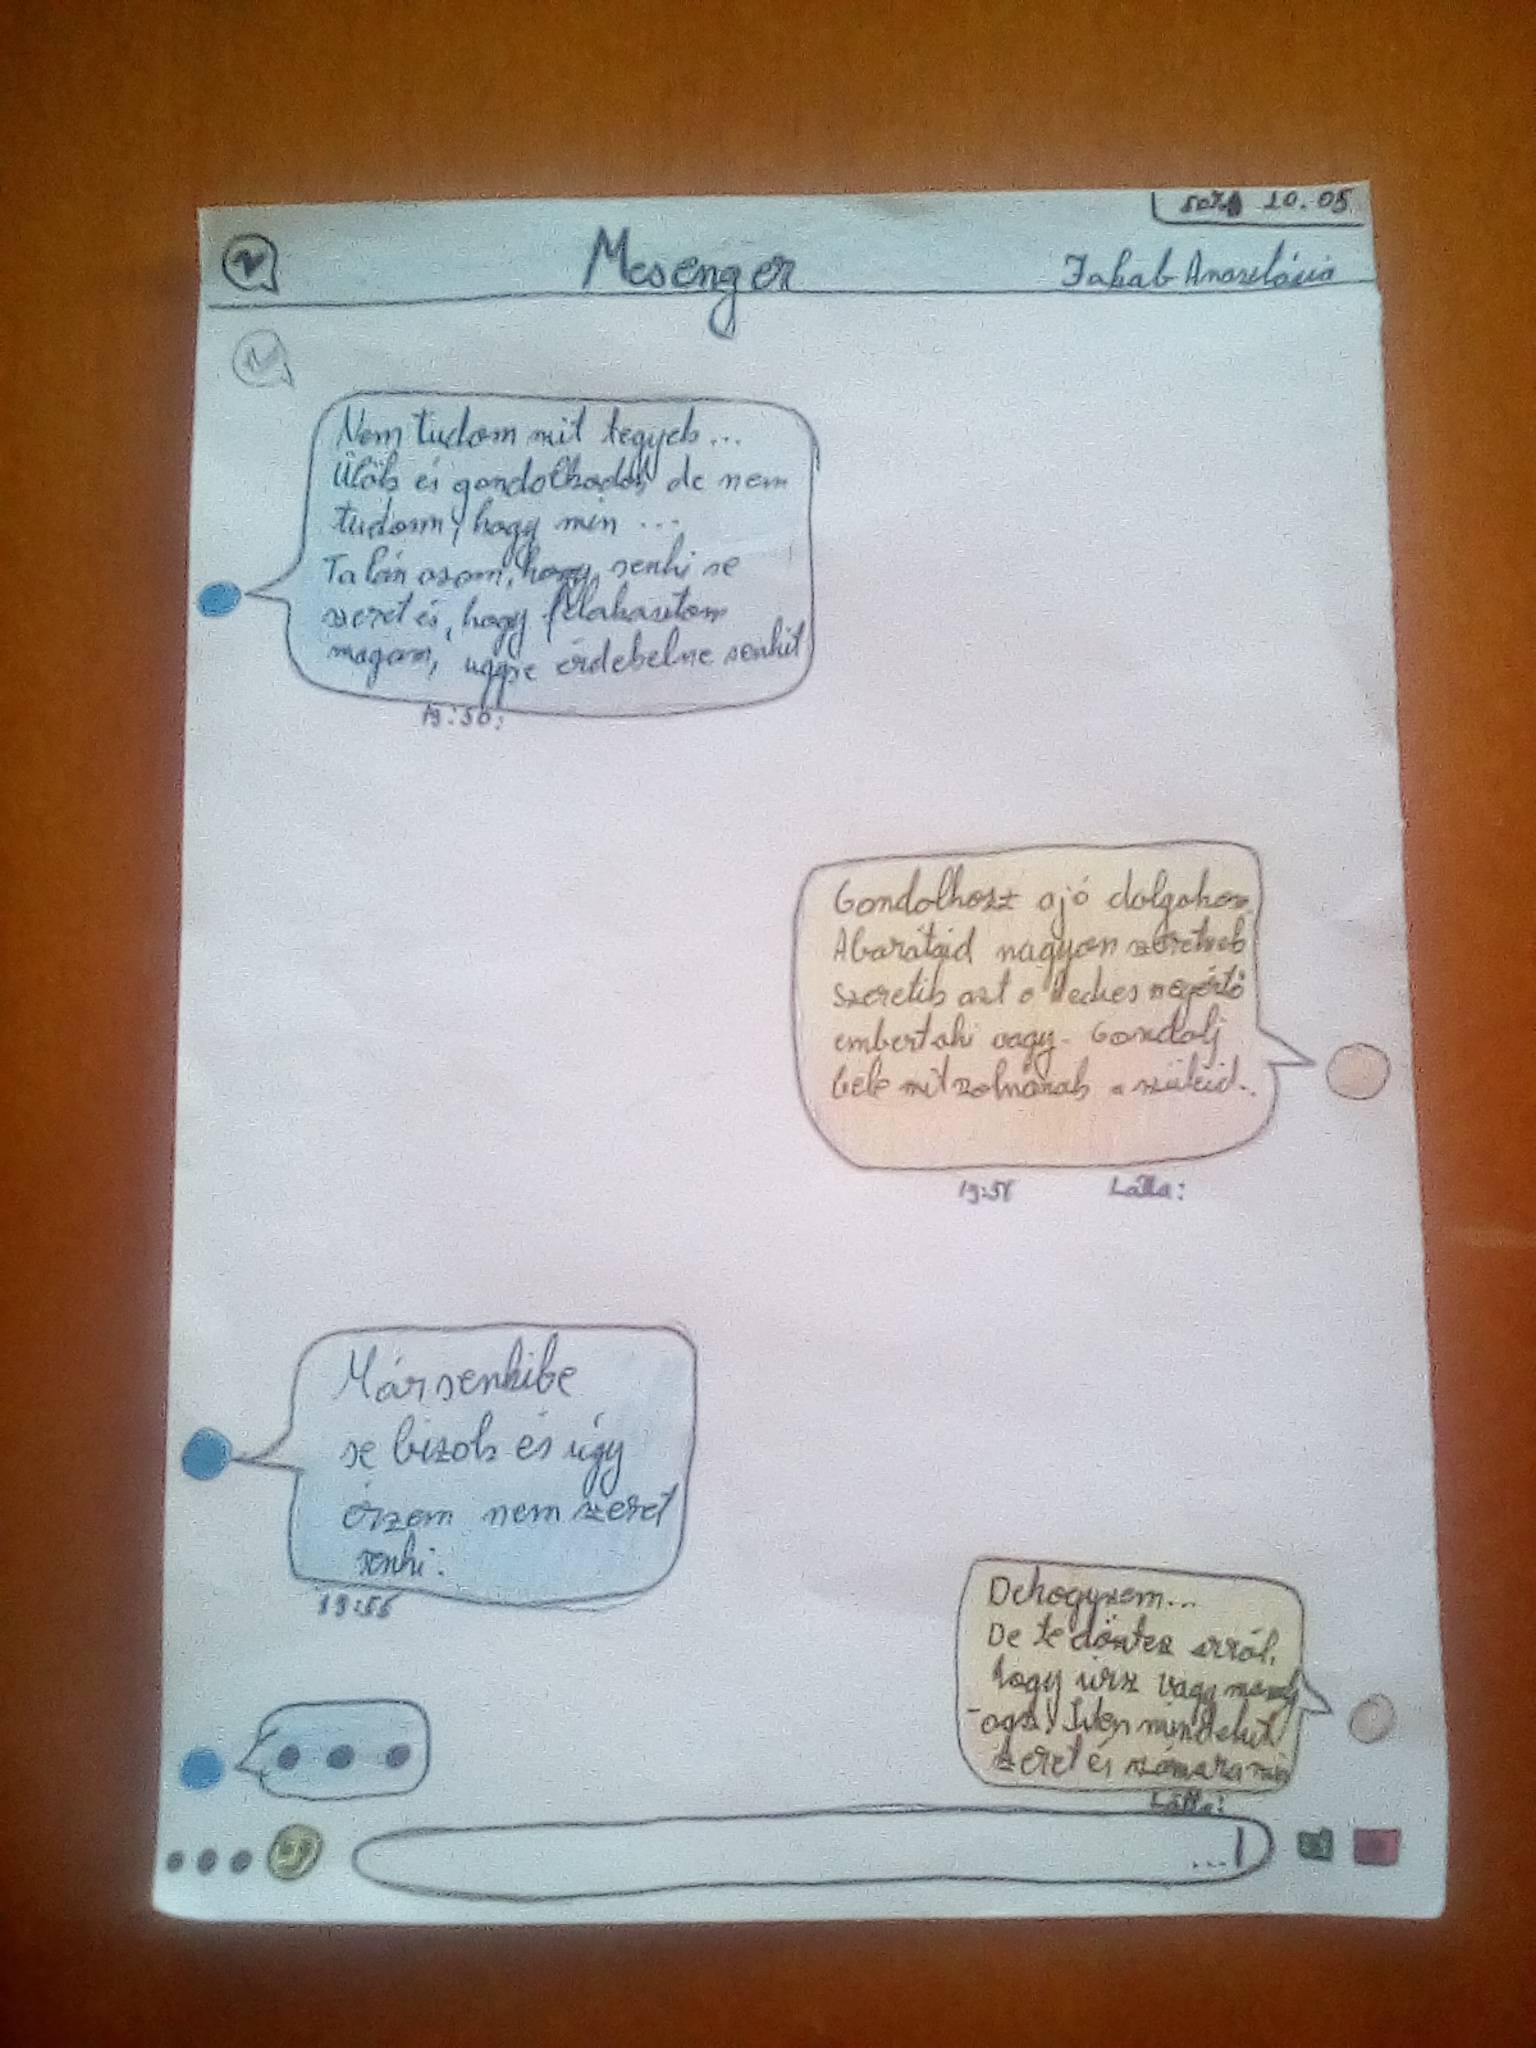 50% 10.05
Mesenger
Jakab Anasztázia
Nem tudom mit tegyek...
Ülök és gondolkodok, de nem
tudom, hogy min ...
Talán azom, hogy, senki se
szeret és, hogy felakasztom
magam, úgyse érdekelne senkit
19:50:
Gondolkozz ajó dolgokon
Abarátaid nagyon szeretnek
Szeretik azt a kedves megértő
embertaki vagy. Gondolj
bele mit szolnának a szüleid..
19:51 Látta:
Mársenkibe
se bizok és úgy
érzem nem szeret
senki.
19:55
Dehogysem...
De te döntes erről,
hogy írsz vagy
Isten mindekit
szeret és számára
Látta:
...